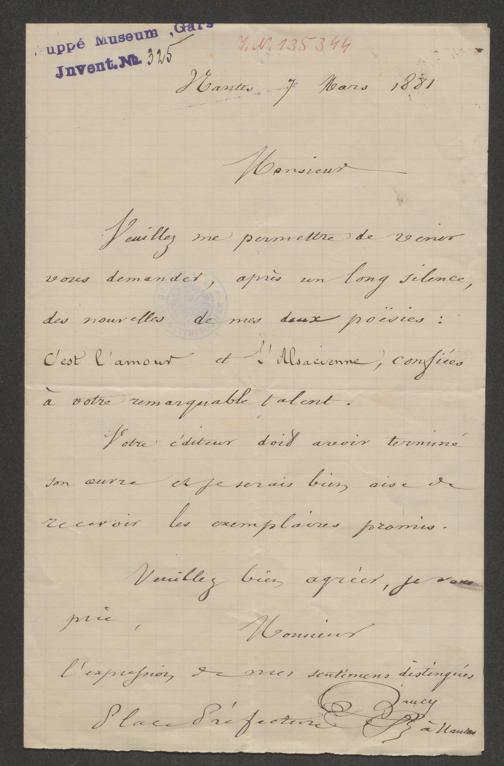 Suppé Museum, Gars
Invent. No. 325
I.N. 135344
Nantes 7 Mars 1881
Monsieur
Veuillez me permettre de venir
vous demander, après un long silence,
des nouvelles de mes deux poësies :
C'est l'amour et L'Alsacienne, confiées
à votre remarquable talent.
Votre éditeur doit avoir terminé
son œuvre et je serais bien aise de
recevoir les exemplaires promis.
Veuillez bien agréer, je vous
prie,
Monsieur
l'expression de mes sentimens distingués
Place Préfecture à Nantes